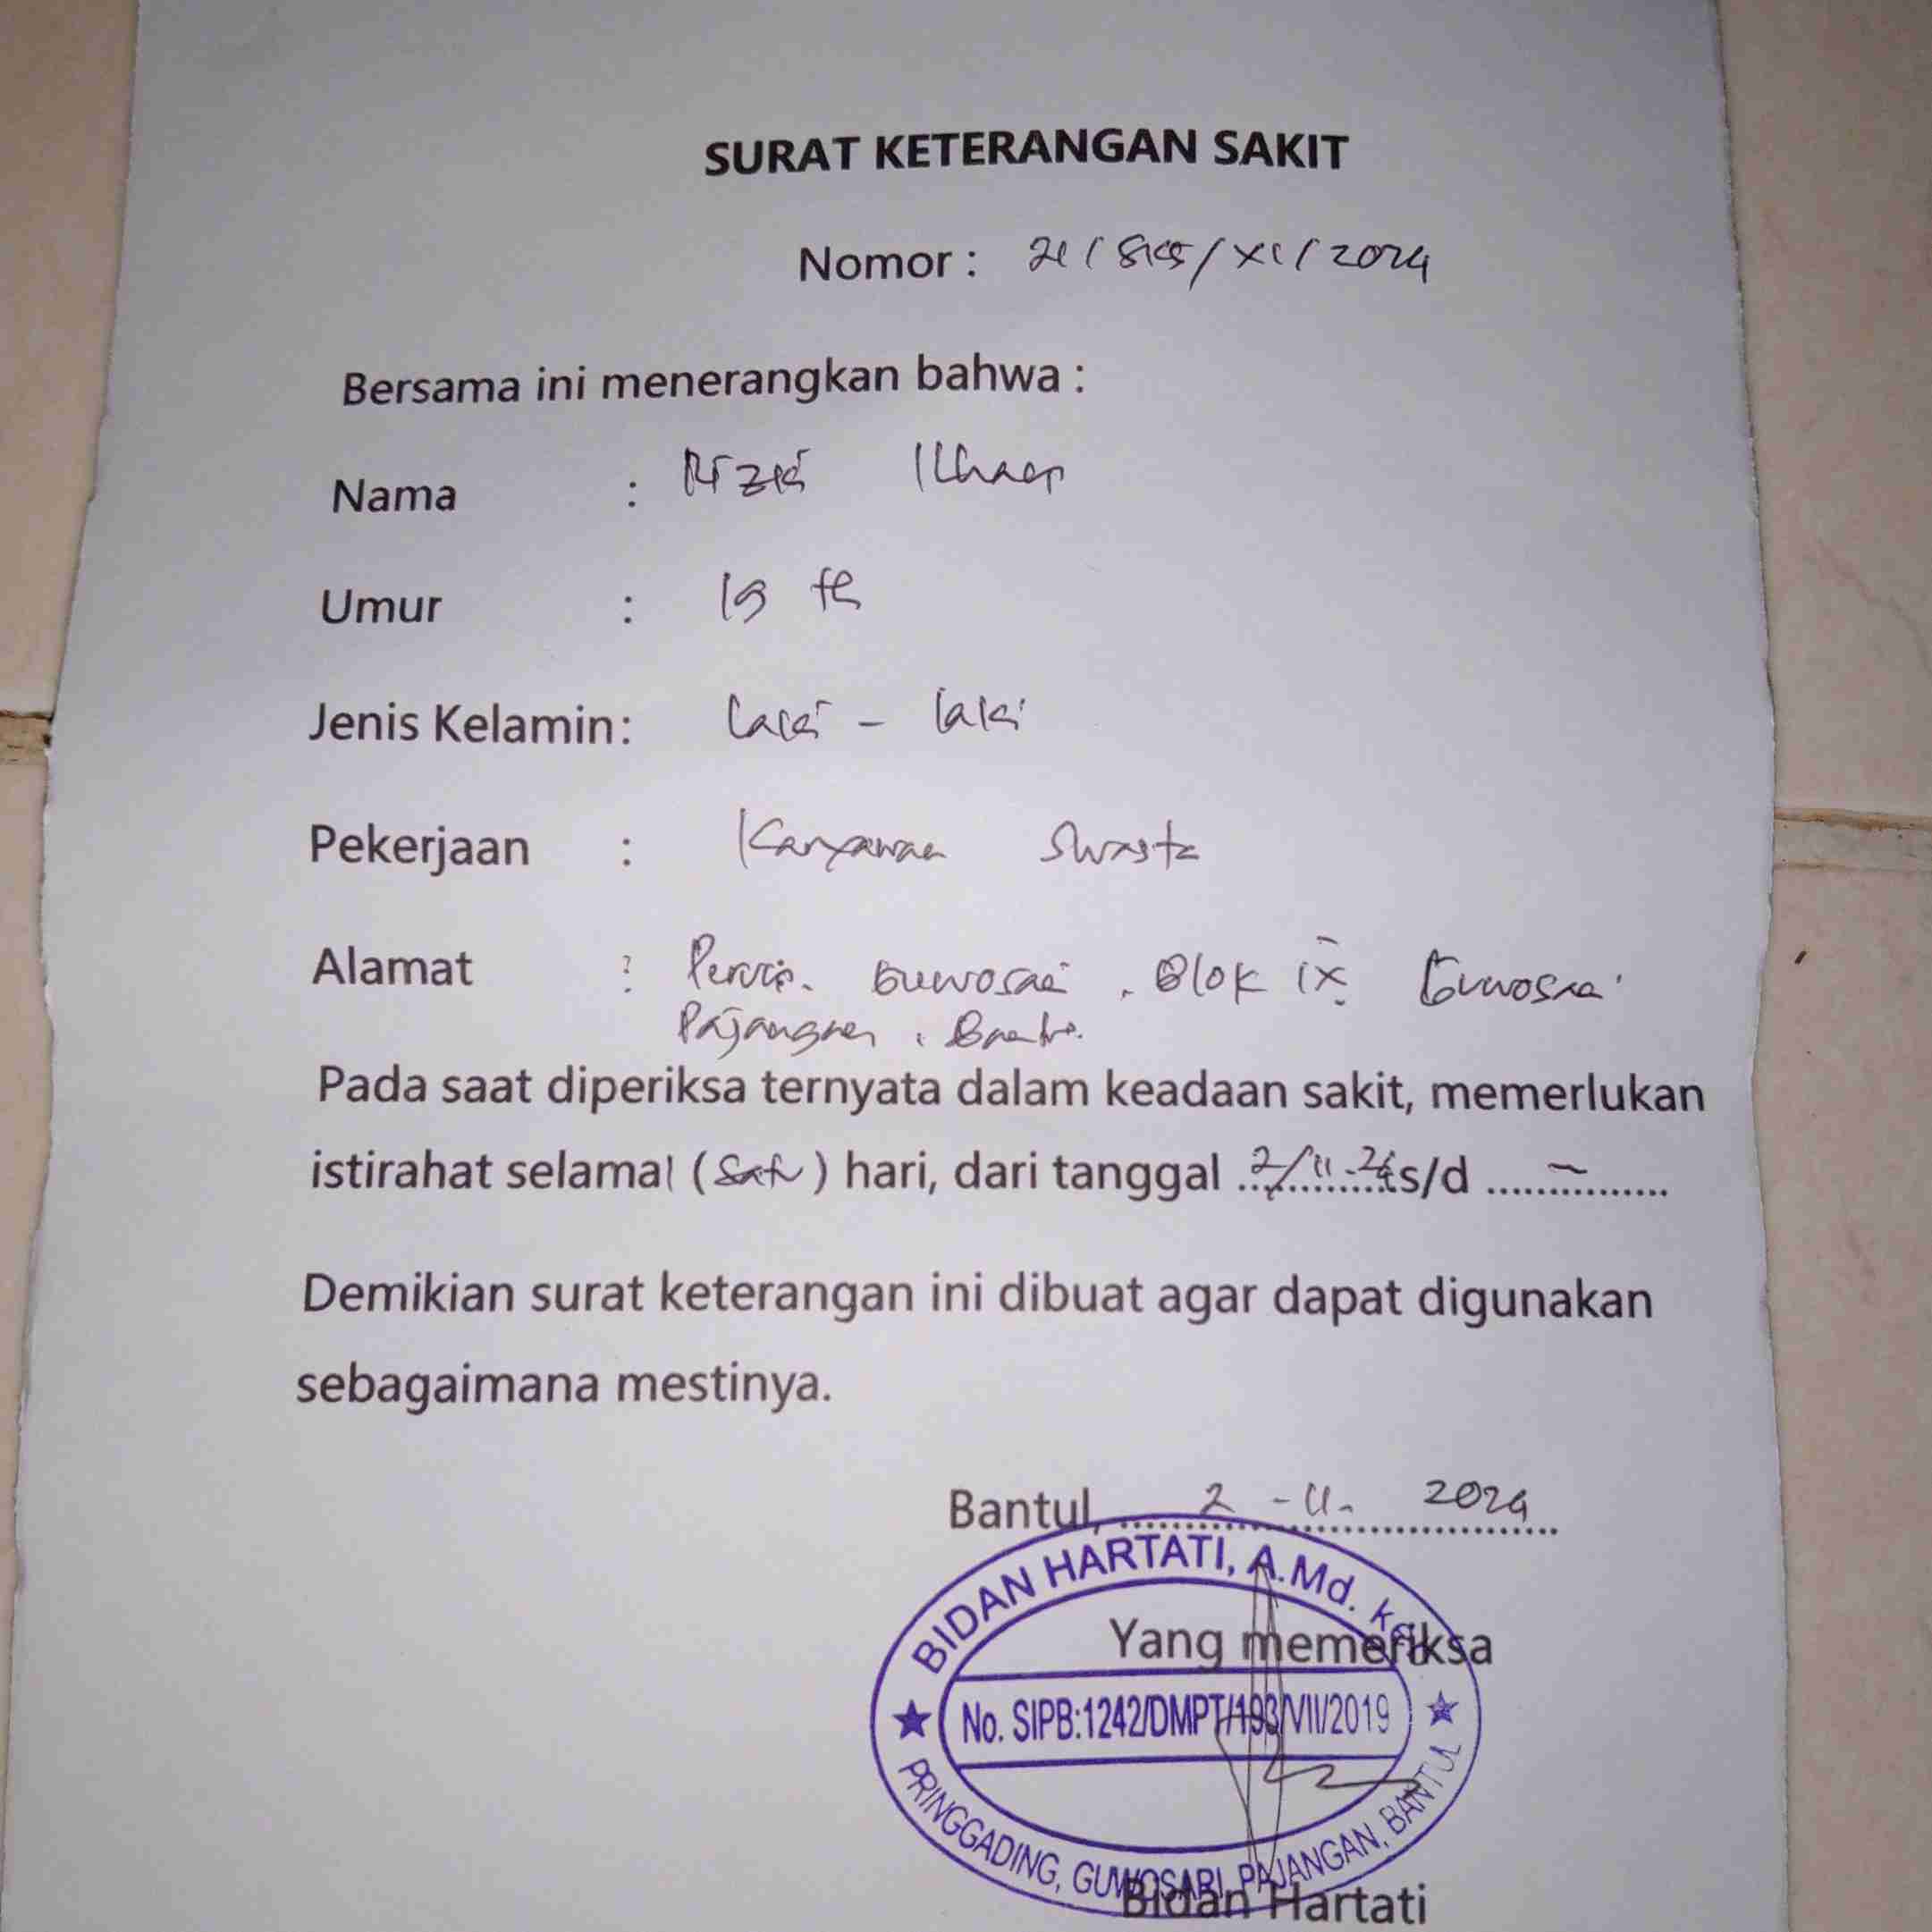 SURAT KETERANGAN SAKIT
Nomor : 21 / SKS / XI / 2024
Bersama ini menerangkan bahwa :
Nama : Rizki Ilham
Umur : 19 th
Jenis Kelamin: Laki - laki
Pekerjaan : Karyawan Swasta
Alamat : Guwosari, Blok IX Guwosari
Pajangan, Bantul.
Pada saat diperiksa ternyata dalam keadaan sakit, memerlukan
istirahat selama 1 (Satu) hari, dari tanggal 2/11-24 s/d ..... – .....
Demikian surat keterangan ini dibuat agar dapat digunakan
sebagaimana mestinya.
Bantul, 2 - 11 - 2024
BIDAN HARTATI, A.Md. Keb
Yang memeriksa
No. SIPB:1242/DMPT/193/VII/2019
PRINGGADING, GUWOSARI, PAJANGAN, BANTUL
Bidan Hartati